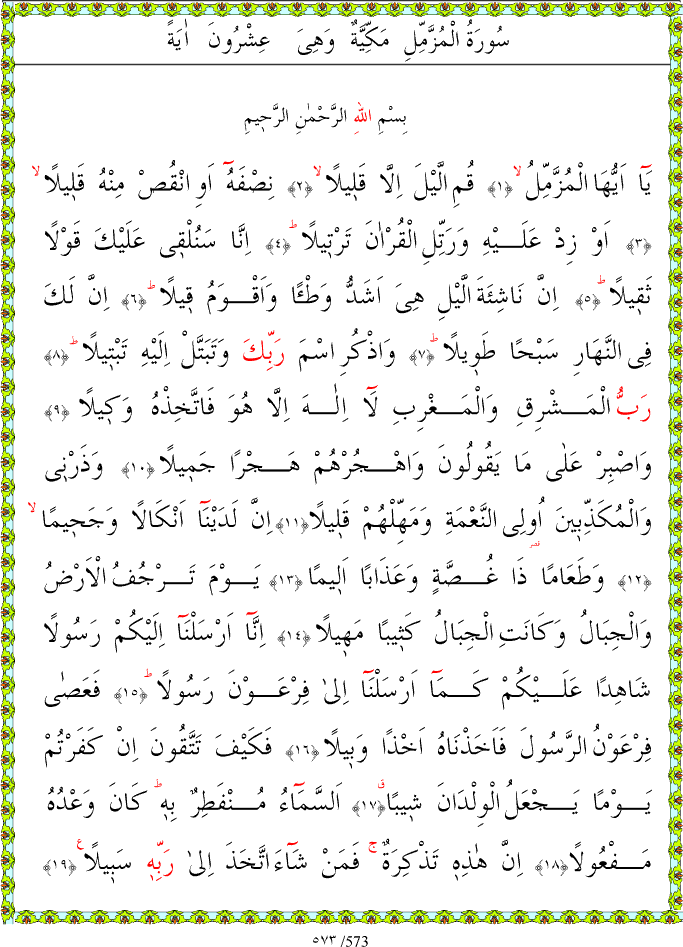 سُورَةُ الْمُزَّمِّلِ مَكِّيَّةٌ وَهِىَ عِشْرُونَ اٰيَةً
بِسْمِ اللهِ الرَّحْمٰنِ الرَّحٖيمِ
يَٓا اَيُّهَا الْمُزَّمِّلُۙ ﴿١﴾ قُمِ الَّيْلَ اِلَّا قَلٖيلًاۙ ﴿٢﴾ نِصْفَهُٓ اَوِ انْقُصْ مِنْهُ قَلٖيلًاۙ
﴿٣﴾ اَوْ زِدْ عَلَـــيْهِ وَرَتِّلِ الْقُرْاٰنَ تَرْتٖيلًاؕ ﴿٤﴾ اِنَّا سَنُلْقٖى عَلَيْكَ قَوْلًا
ثَقٖيلًاؕ ﴿٥﴾ اِنَّ نَاشِئَةَ الَّيْلِ هِىَ اَشَدُّ وَطْـًٔا وَاَقْـــوَمُ قٖيلًاؕ ﴿٦﴾ اِنَّ لَكَ
فِى النَّهَارِ سَبْحًا طَوٖيلًاؕ ﴿٧﴾ وَاذْكُرِ اسْمَ رَبِّكَ وَتَبَتَّلْ اِلَيْهِ تَبْتٖيلًاؕ ﴿٨﴾
رَبُّ الْمَـــشْرِقِ وَالْمَـــغْرِبِ لَٓا اِلٰـــهَ اِلَّا هُوَ فَاتَّخِذْهُ وَكٖيلًا ﴿٩﴾
وَاصْبِرْ عَلٰى مَا يَقُولُونَ وَاهْـــجُرْهُمْ هَـــجْرًا جَمٖيلًا ﴿١٠﴾ وَذَرْنٖى
وَالْمُكَذِّبٖينَ اُولِى النَّعْمَةِ وَمَهِّلْهُمْ قَلٖيلًا ﴿١١﴾ اِنَّ لَدَيْنَٓا اَنْكَالًا وَجَحٖيمًاۙ
﴿١٢﴾ وَطَعَامًا ذَا غُـــصَّةٍ وَعَذَابًا اَلٖيمًا ﴿١٣﴾ يَـــوْمَ تَـــرْجُفُ الْاَرْضُ
وَالْجِبَالُ وَكَانَتِ الْجِبَالُ كَثٖيبًا مَهٖيلًا ﴿١٤﴾ اِنَّٓا اَرْسَلْنَٓا اِلَيْكُمْ رَسُولًا
شَاهِدًا عَلَـــيْكُمْ كَـــمَٓا اَرْسَلْنَٓا اِلٰى فِرْعَـــوْنَ رَسُولًاؕ ﴿١٥﴾ فَعَصٰى
فِرْعَوْنُ الرَّسُولَ فَاَخَذْنَاهُ اَخْذًا وَبٖيلًا ﴿١٦﴾ فَكَيْفَ تَتَّقُونَ اِنْ كَفَرْتُمْ
يَـــوْمًا يَـــجْعَلُ الْوِلْدَانَ شٖيبًاࣗ ﴿١٧﴾ اَلسَّمَٓاءُ مُـــنْفَطِرٌ بِهٖؕ كَانَ وَعْدُهُ
مَـــفْعُولًا ﴿١٨﴾ اِنَّ هٰذِهٖ تَذْكِرَةٌۚ فَمَنْ شَٓاءَ اتَّخَذَ اِلٰى رَبِّهٖ سَبٖيلًاࣖ ﴿١٩﴾
٥٧٣ /573